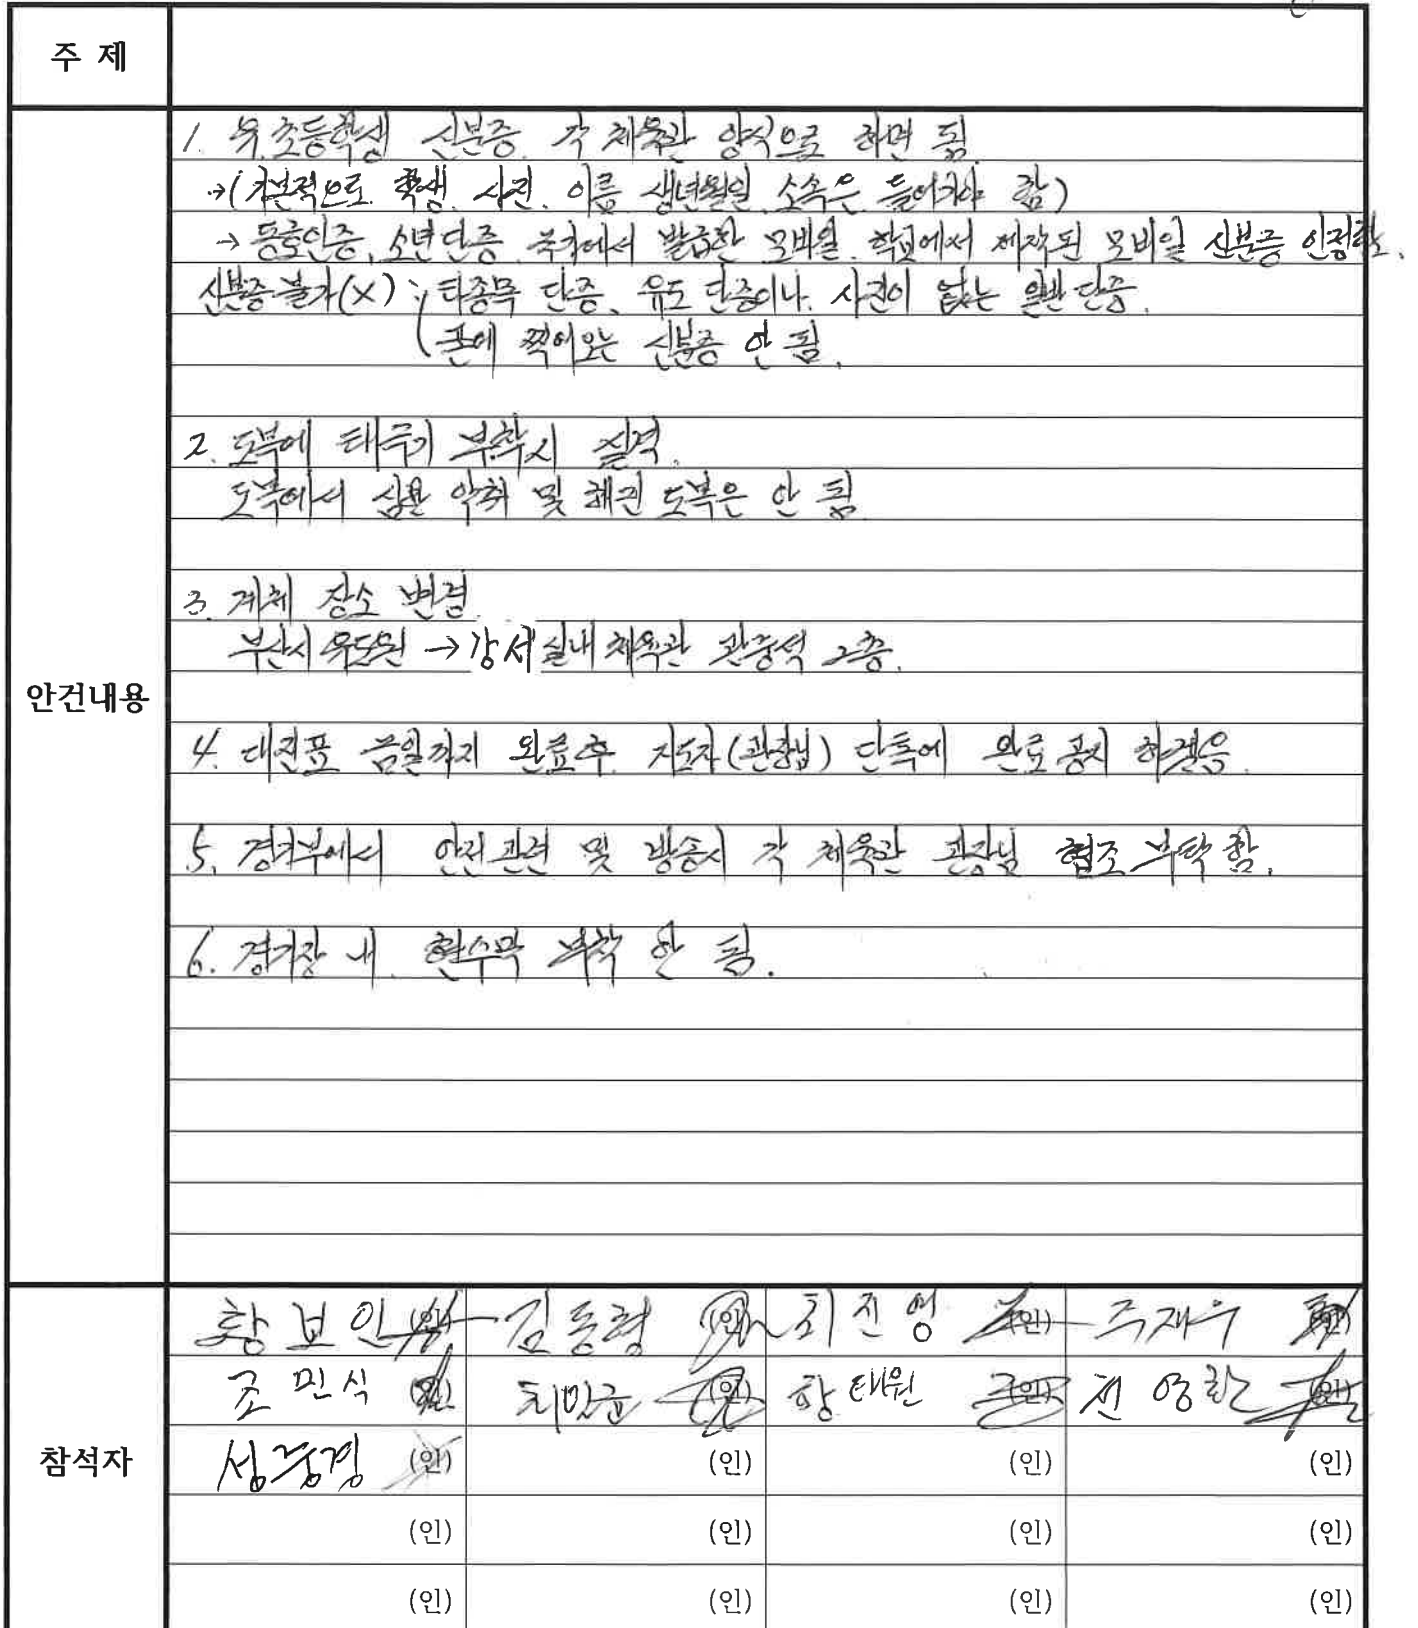 주 제
안건내용
1. 유.초등학생 신분증 각 체육관 양식으로 하면 됨.
→(기본적으로 학생. 사진. 이름 생년월일. 소속은 들어가야 함)
→ 등록인증, 소년단증. 국가에서 발급한 모바일. 학교에서 제작된 모바일 신분증 인정함.
신분증 불가(X) : 타종목 단증, 유도 단증이나. 사진이 없는 일반 단증.
폰에 찍어오는 신분증 안 됨.
2. 도복에 태극기 부착시 실격.
도복에서 심한 악취 및 해진 도복은 안 됨
3. 계체 장소 변경
부산시유도원 → 강서실내체육관 관중석 2층.
4. 대진표 금일까지 완료후. 지도자(관장님) 단톡에 완료 공지 하겠음.
5. 경기부에서 안전관련 및 방송시 각 체육관 관장님 협조 부탁함.
6. 경기장 내. 현수막 부착 안 됨.
참석자
황보인 (인) 김동형 (인) 최진영 (인) 주재우 (인)
조민식 (인) 최민균 (인) 황태원 (인) 전영환 (인)
성동경 (인) (인) (인) (인)
(인) (인) (인) (인)
(인) (인) (인) (인)